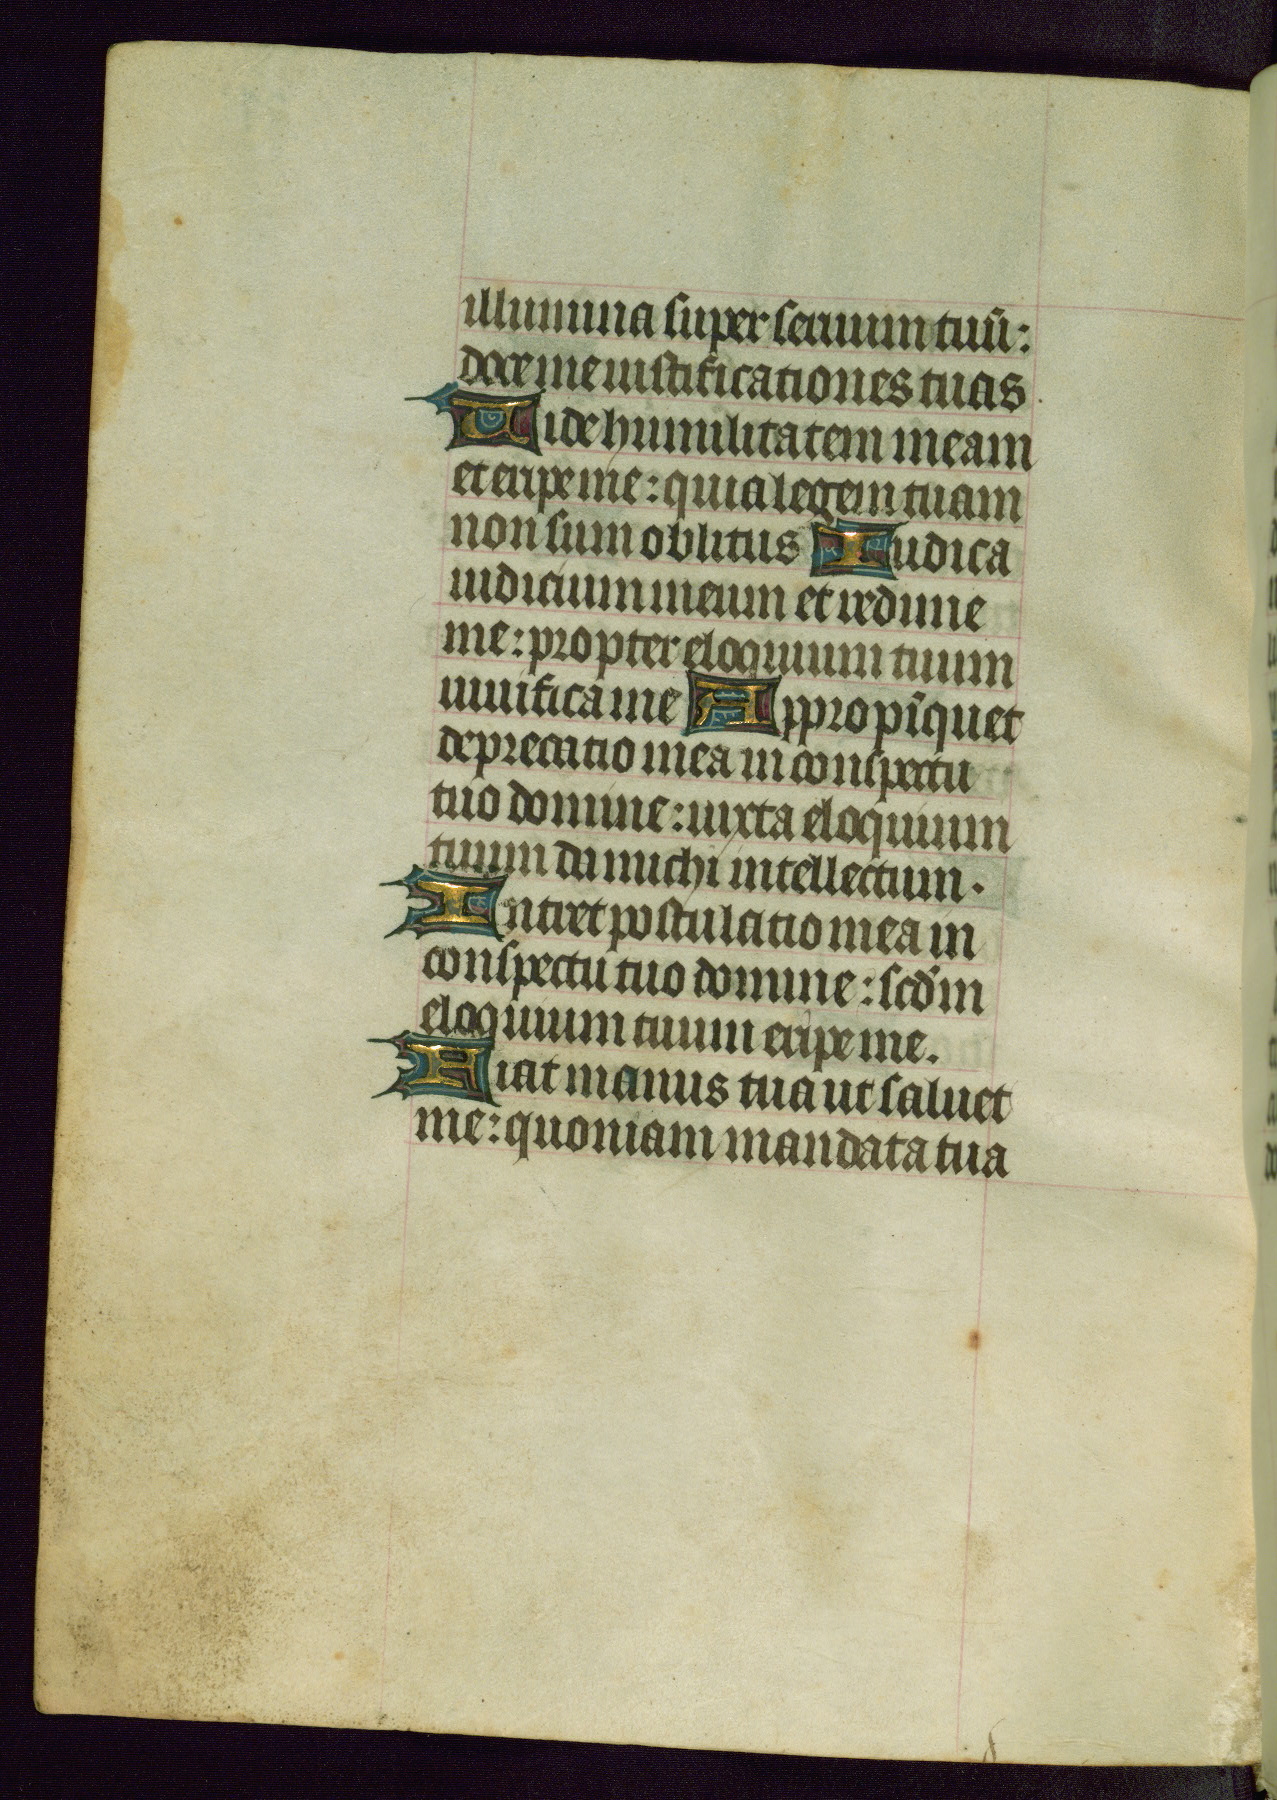 illumina super seruum tuū:
doce me iustificationes tuas
Uide humilitatem meam
et eripe me: quia legem tuam
non sum oblitus Iudica
iudicium meum et redime
me: propter eloquium tuum
uiuifica me Appropīquet
deprecatio mea in conspectu
tuo domine: iuxta eloquium
tuum da michi intellectum.
Intret postulatio mea in
conspectu tuo domine: scdm̄
eloquium tuum eripe me.
Fiat manus tua ut saluet
me: quoniam mandata tua